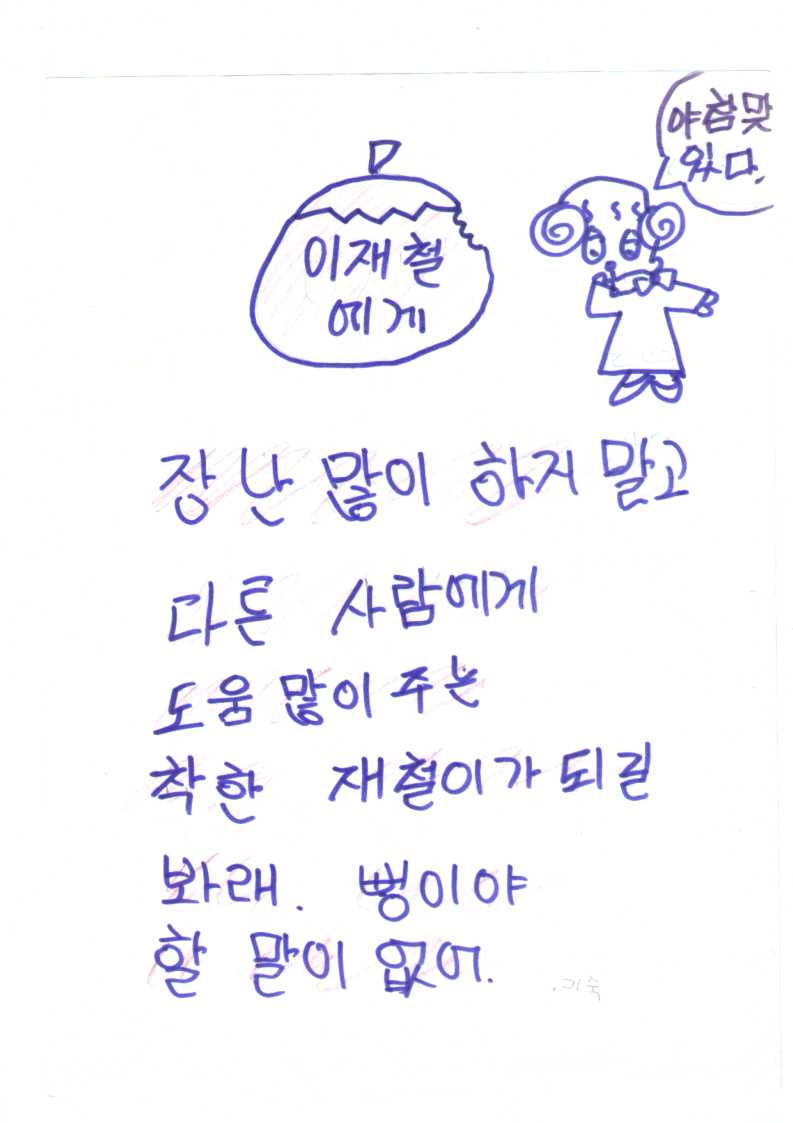 야 참 맛
있다.
이재철
에게
장난 많이 하지 말고
다른 사람에게
도움 많이 주는
착한 재철이가 되길
봐래. 뻥이야
할 말이 없어.
.기숙